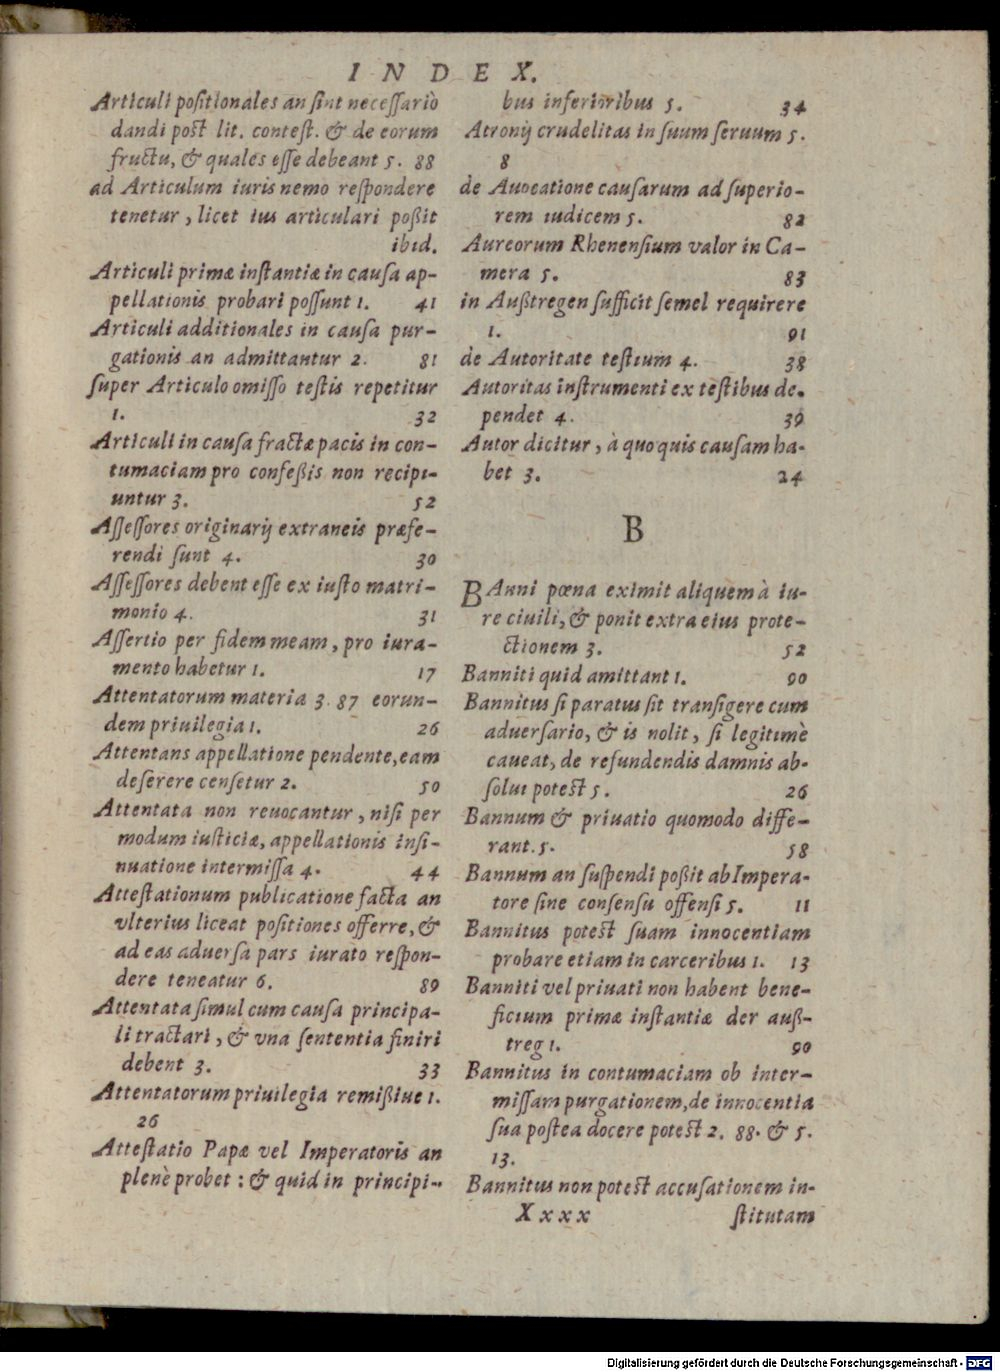 INDEX.
Articuli positionales an sint necessariò
dandi post lit. contest. & de eorum
fructu, & quales esse debeant 5. 88
ad Articulum iuris nemo respondere
tenetur, licet ius articulari poßit
ibid.
Articuli primæ instantiæ in causa ap-
pellationis probari possunt 1. 41
Articuli additionales in causa pur-
gationis an admittantur 2. 81
super Articulo omisso testis repetitur
1. 32
Articuli in causa fractæ pacis in con-
tumaciam pro confeßis non recipi-
untur 3. 52
Assessores originarij extraneis præfe-
rendi sunt 4. 30
Assessores debent esse ex iusto matri-
monio 4. 31
Assertio per fidem meam, pro iura-
mento habetur 1. 17
Attentatorum materia 3. 87 eorun-
dem priuilegia 1. 26
Attentans appellatione pendente, eam
deserere censetur 2. 50
Attentata non reuocantur, nisi per
modum iusticiæ, appellationis insi-
nuatione intermissa 4. 44
Attestationum publicatione facta an
vlterius liceat positiones offerre, &
ad eas aduersa pars iurato respon-
dere teneatur 6. 89
Attentata simul cum causa principa-
li tractari, & vna sententia finiri
debent 3. 33
Attentatorum priuilegia remißiue 1.
26
Attestatio Papæ vel Imperatoris an
plenè probet: & quid in principi-
bus inferioribus 5. 34
Atronij crudelitas in suum seruum 5.
8
de Auocatione causarum ad superio-
rem iudicem 5. 82
Aureorum Rhenensium valor in Ca-
mera 5. 83
in Außtregen sufficit semel requirere
1. 91
de Autoritate testium 4. 38
Autoritas instrumenti ex testibus de-
pendet 4. 39
Autor dicitur, à quo quis causam ha-
bet 3. 24
B
BAnni pœna eximit aliquem à iu-
re ciuili, & ponit extra eius prote-
ctionem 3. 52
Banniti quid amittant 1. 90
Bannitus si paratus sit transigere cum
aduersario, & is nolit, si legitimè
caueat, de refundendis damnis ab-
solui potest 5. 26
Bannum & priuatio quomodo diffe-
rant. 5. 58
Bannum an suspendi poßit ab Impera-
tore sine consensu offensi 5. 11
Bannitus potest suam innocentiam
probare etiam in carceribus 1. 13
Banniti vel priuati non habent bene-
ficium primæ instantiæ der auß-
treg 1. 90
Bannitus in contumaciam ob inter-
missam purgationem, de innocentia
sua postea docere potest 2. 88. & 5.
13.
Bannitus non potest accusationem in-
Xxxx stitutam
Digitalisierung gefördert durch die Deutsche Forschungsgemeinschaft - DFG